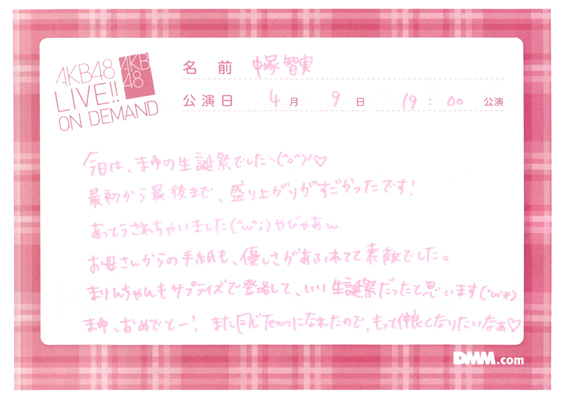 AKB48
LIVE!!
ON DEMAND
AKB
48
名前 中塚智実
公演日 4月 9日 19:00 公演
今日は、まゆの生誕祭でした(°o°)/♡
最初から最後まで、盛り上がりがすごかったです!
あっとうされちゃいました(^ω^;)やびゃあぃ
お母さんからの手紙も、優しさがあふれてて素敵でした。
まりんちゃんもサプライズで登場して、いい生誕祭だったと思います(･ω･)
まゆ、おめでとー! また同じTeamになれたので、もっと仲良くなりたいなぁ♡
DMM.com